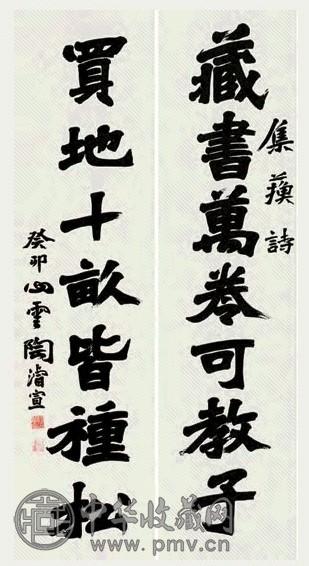 集蘓詩
藏書萬卷可教子
買地十畝皆種松
癸卯心雲陶濬宣
中华收藏网
www.pmv.cn